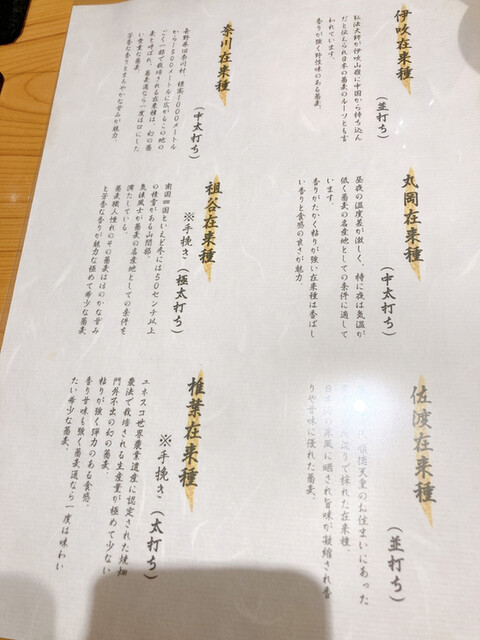 伊吹在来種
（並打ち）
弘法大師が伊吹山麓に中国から持ち込ん
だと伝えられ日本の蕎麦のルーツとも言
われています。
香りが強く野性味のある蕎麦。
奈川在来種
（中太打ち）
長野県旧奈川村、標高1000メートル
から1500メートルに広がるこの地の
ごく一部で栽培される在来種は、幻の蕎
麦と呼ばれ、蕎麦通なら一度は口にした
い貴重な蕎麦。
芳香な香りとまろやかな甘みが魅力。
丸岡在来種
（中太打ち）
昼夜の温度差が激しく、特に夜は気温が
低く蕎麦の名産地としての条件に適して
います。
香りがたかく粘りが強い在来種は香ばし
い香りと食感の良さが魅力。
祖谷在来種
※手挽き（極太打ち）
南国四国といえど冬には50センチ以上
の積雪がある山間部。
気候風土が蕎麦の名産地としての条件を
満たしている。
蕎麦職人憧れのその蕎麦はほのかな甘み
と芳香な香りが魅力な極めて希少な蕎麦。
佐渡在来種
（並打ち）
順徳天皇のお住まいにあった
辺りで採れた在来種。
の寒風に晒され旨味が凝縮され香
りや甘味に優れた蕎麦。
椎葉在来種
※手挽き（太打ち）
ユネスコ世界農業遺産に認定された焼畑
農法で栽培される生産量が極めて少ない
門外不出の幻の蕎麦。
粘りが強く弾力のある食感。
香り甘味も強く蕎麦通なら一度は味わい
たい希少な蕎麦。